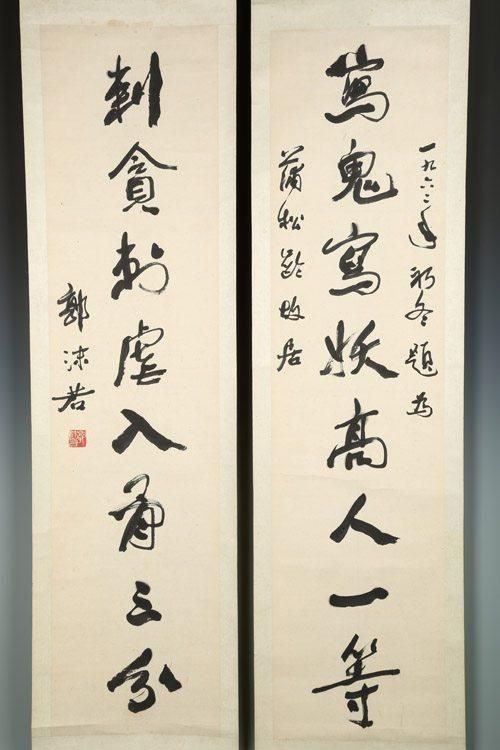 一九六二年初冬題為
寫鬼寫妖高人一等
蒲松齡故居
刺貪刺虐入骨三分
郭沫若